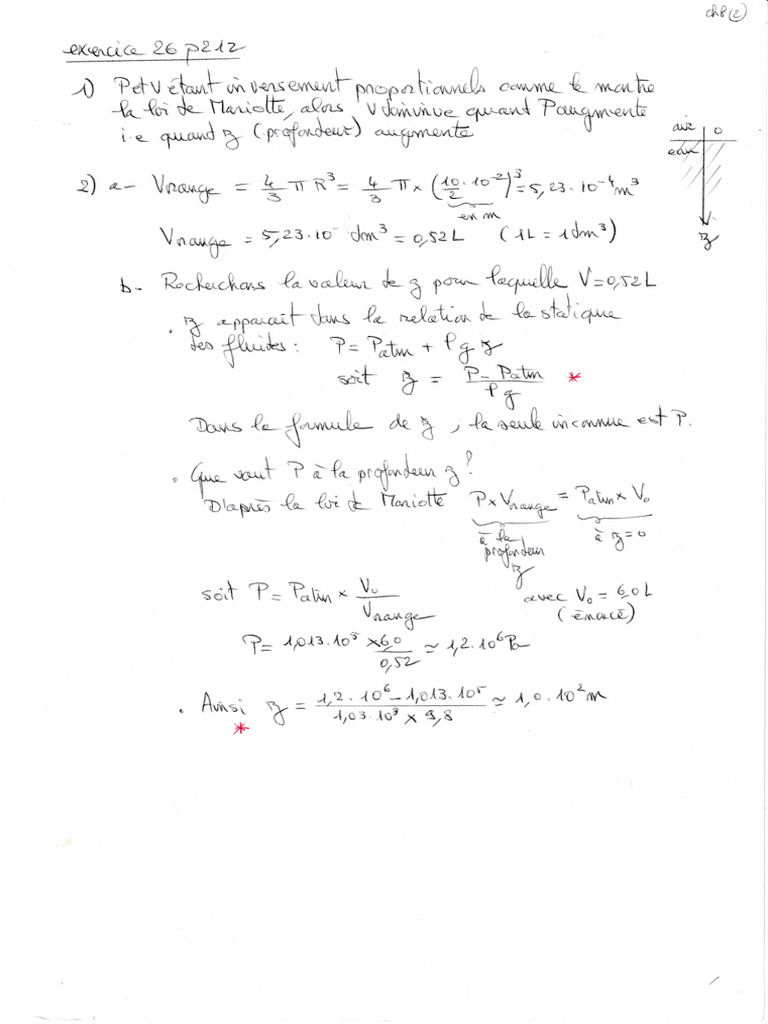 ch8 (2)
exercice 26 p212
1) P et V étant inversement proportionnels comme le montre
la loi de Mariotte, alors V diminue quand P augmente
i.e quand z (profondeur) augmente
air 0
eau
z
2) a- Vorange = 4/3 π R³ = 4/3 π × (10·10⁻²/2)³ = 5,23·10⁻⁴ m³
en m
Vorange = 5,23·10⁻ dm³ = 0,52L (1L = 1dm³)
b- Recherchons la valeur de z pour laquelle V=0,52L
. z apparait dans la relation de la statique
des fluides : P = Patm + ρ g z
soit z = (P - Patm)/(ρ g) *
Dans la formule de z, la seule inconnue est P.
. Que vaut P à la profondeur z ?
D'après la loi de Mariotte P × Vorange = Patm × V₀
à la profondeur z
à z=0
soit P = Patm × V₀/Vorange avec V₀ = 6,0L
(énoncé)
P = 1,013·10⁵ × 6,0/0,52 ≃ 1,2·10⁶ Pa
. Ainsi z = (1,2·10⁶ - 1,013·10⁵)/(1,03·10³ × 9,8) ≃ 1,0·10² m
*